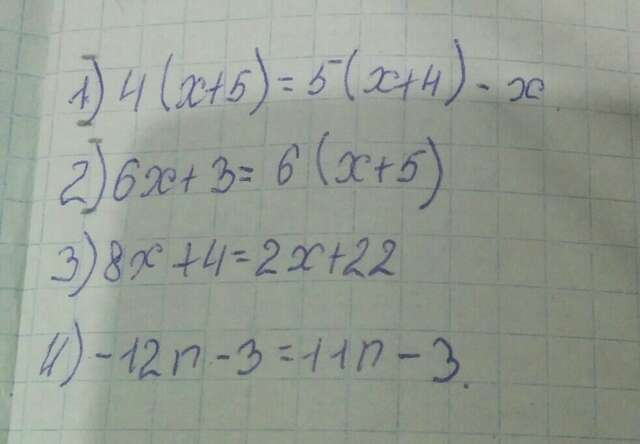 1) 4(x+5)=5(x+4)-x
2) 6x+3=6(x+5)
3) 8x+4=2x+22
4) -12n-3=11n-3.